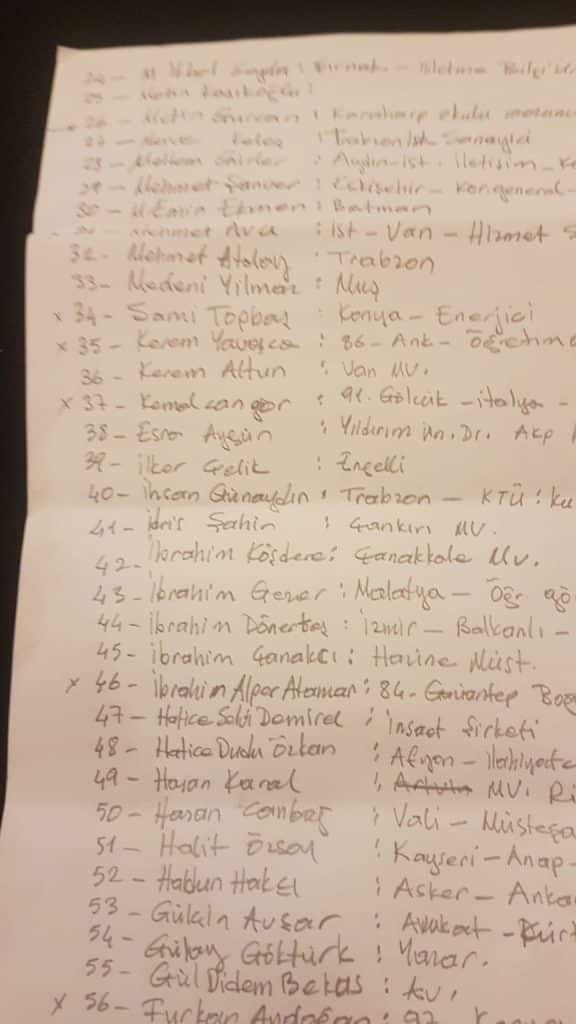 24 - : Şırnak - İşletme
25 - Metin
x 26 - Metin Gürcan : Karaharp okulu mezunu
27 - Merve : Trabzon ist. Sanayici
28 - Meltem : Aydın-ist. İletişim - K
29 - Mehmet Şanver : Eskişehir - Korgeneral -
30 - M Emin Ekmen : Batman
Mehmet Avcı : ist - Van - Hizmet S
32 - Mehmet Atalay : Trabzon
33 - Medeni Yılmaz : Muş
x 34 - Sami Topbaş : Konya - Enerjici
x 35 - Kerem : 86 - Ank - Öğretme
36 - Kerem Altun : Van MV.
x 37 - Kemal can gör : 91. Gölcük - italya -
38 - Esra Aygün : Yıldırım ün. Dr. Akp
39 - ilker Çelik : Engelli
40 - ihsan Günaydın : Trabzon - KTÜ : ku
41 - idris Şahin : Çankırı MV.
42 - İbrahim Köşdere : Çanakkale Mv.
43 - ibrahim Gezer : Malatya - Öğr gö
44 - ibrahim Dönertaş : izmir - Balkanlı -
45 - ibrahim Çanakcı : Hazine Müst.
x 46 - ibrahim Alper Ataman : 84 - Gaziantep Boğ
47 - Hatice Demirel : inşaat şirketi
48 - Hatice Dudu Özkan : Afyon - ilahiyatç
49 - Hasan Karal : Artvin MV. Ri
50 - Hasan Canbaz : Vali - Müsteşa
51 - Halit Özsoy : Kayseri - Anap -
52 - Haldun : Asker - Anka
53 - Gülçin Avşar : Avukat - Kürt
54 - Gülay Göktürk : Yazar.
55 - Gül Didem Bektaş : Av.
x 56 - Furkan : 92